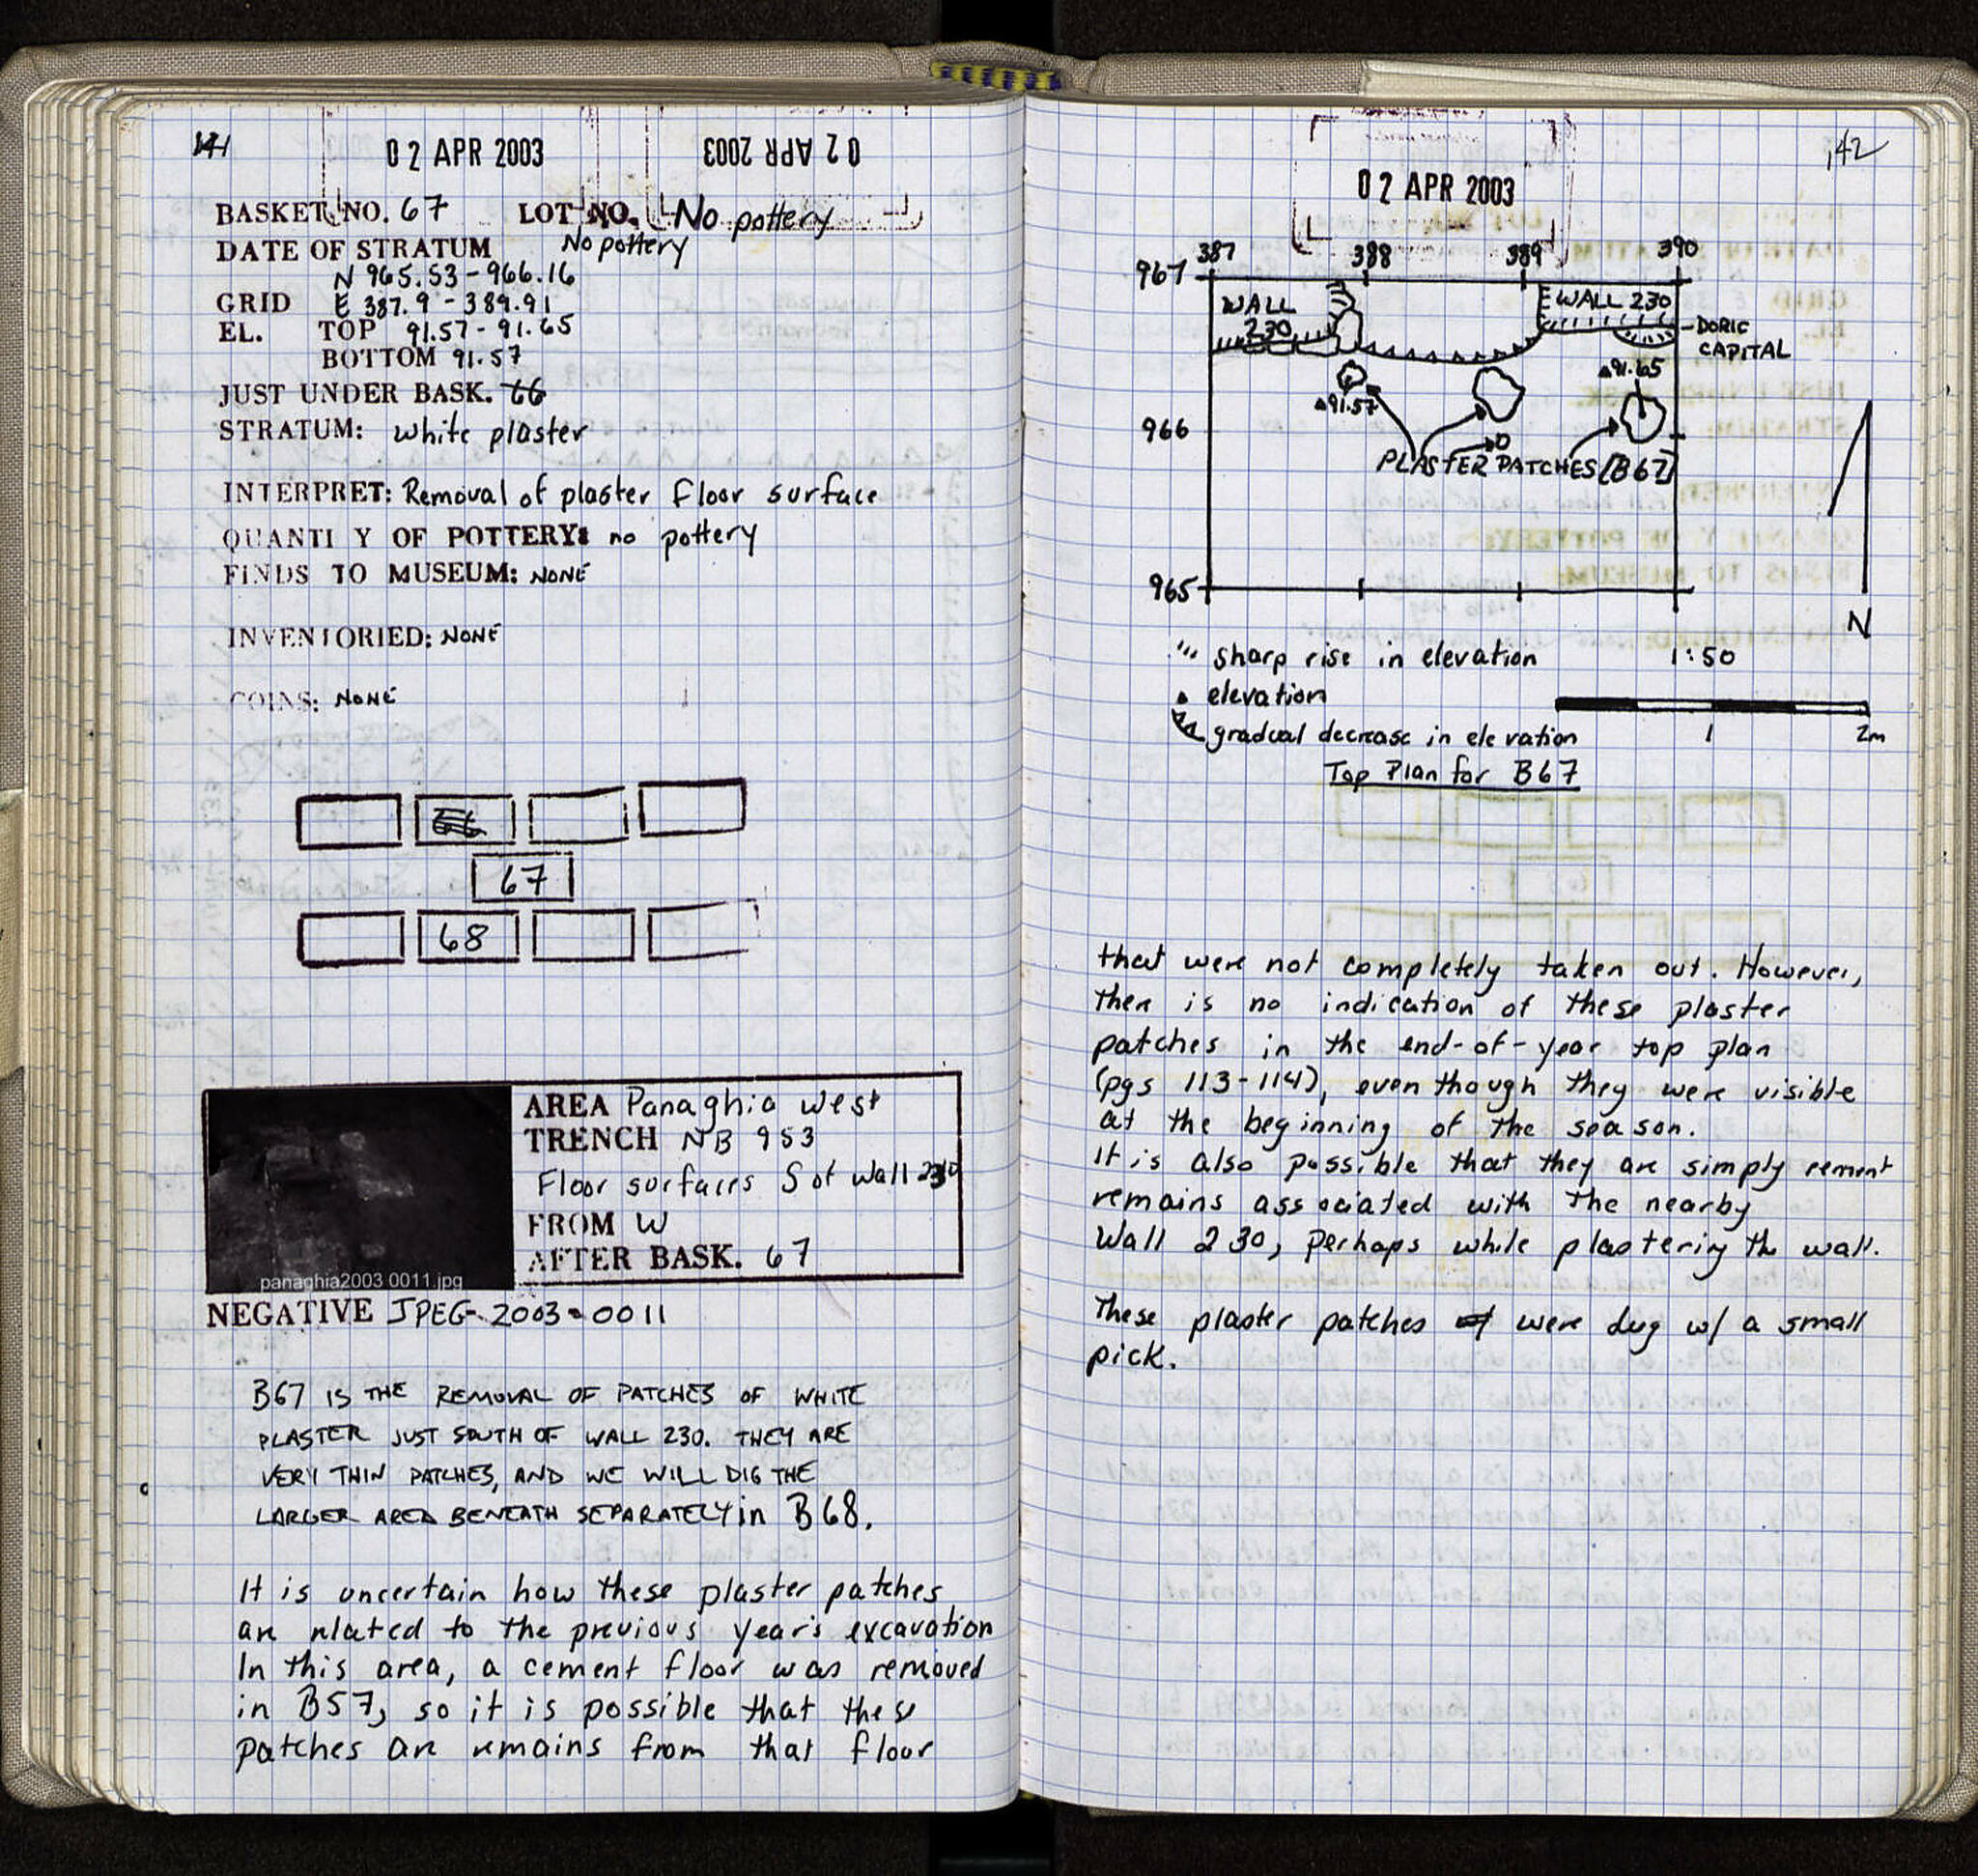 141
02 APR 2003
02 APR 2003
BASKET NO. 67 LOT NO. No pottery
DATE OF STRATUM No pottery
N 965.53-966.16
GRID E 387.9-389.91
EL. TOP 91.57-91.65
BOTTOM 91.57
JUST UNDER BASK.
STRATUM: white plaster
INTERPRET: Removal of plaster floor surface
QUANTI Y OF POTTERY: no pottery
FINDS TO MUSEUM: NONE
INVENTORIED: NONE
COINS: NONE
67
68
AREA Panaghia West
TRENCH NB 953
Floor surfaces S of Wall 230
FROM W
AFTER BASK. 67
panaghia2003 0011.jpg
NEGATIVE JPEG-2003-0011
B67 IS THE REMOVAL OF PATCHES OF WHITE
PLASTER JUST SOUTH OF WALL 230. THEY ARE
VERY THIN PATCHES, AND WE WILL DIG THE
LARGER AREA BENEATH SEPARATELY in B68.
It is uncertain how these plaster patches
are related to the previous year's excavation
In this area, a cement floor was removed
in B57, so it is possible that these
patches are remains from that floor
142
02 APR 2003
387 388 389 390
967
WALL
230
WALL 230
DORIC
CAPITAL
91.65
91.57
966
PLASTER PATCHES [B67]
965
N
''' sharp rise in elevation 1:50
elevation
gradual decrease in elevation
1 2m
Top Plan for B67
that were not completely taken out. However,
there is no indication of these plaster
patches in the end-of-year top plan
(pgs 113-114), even though they were visible
at the beginning of the season.
It is also possible that they are simply cement
remains associated with the nearby
Wall 230, perhaps while plastering the wall.
These plaster patches were dug w/ a small
pick.